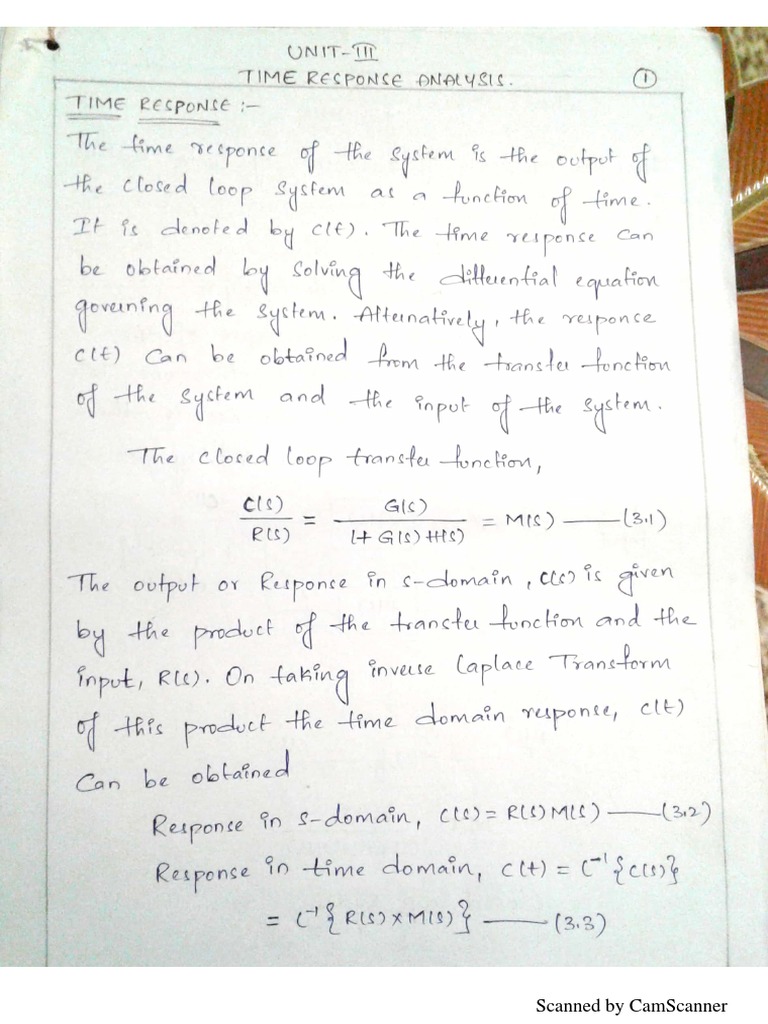 UNIT-III
TIME RESPONSE ANALYSIS.
1
TIME RESPONSE :-
The time response of the system is the output of
the closed loop system as a function of time.
It is denoted by c(t). The time response can
be obtained by solving the differential equation
governing the system. Alternatively, the response
c(t) can be obtained from the transfer function
of the system and the input of the system.
The closed loop transfer function,
C(s)/R(s) = G(s)/(1+G(s)H(s)) = M(s) —— (3.1)
The output or Response in s-domain, C(s) is given
by the product of the transfer function and the
input, R(s). On taking inverse Laplace Transform
of this product the time domain response, c(t)
can be obtained
Response in s-domain, C(s) = R(s)M(s) —— (3.2)
Response in time domain, c(t) = L⁻¹{C(s)}
= L⁻¹{R(s)×M(s)} —— (3.3)
Scanned by CamScanner